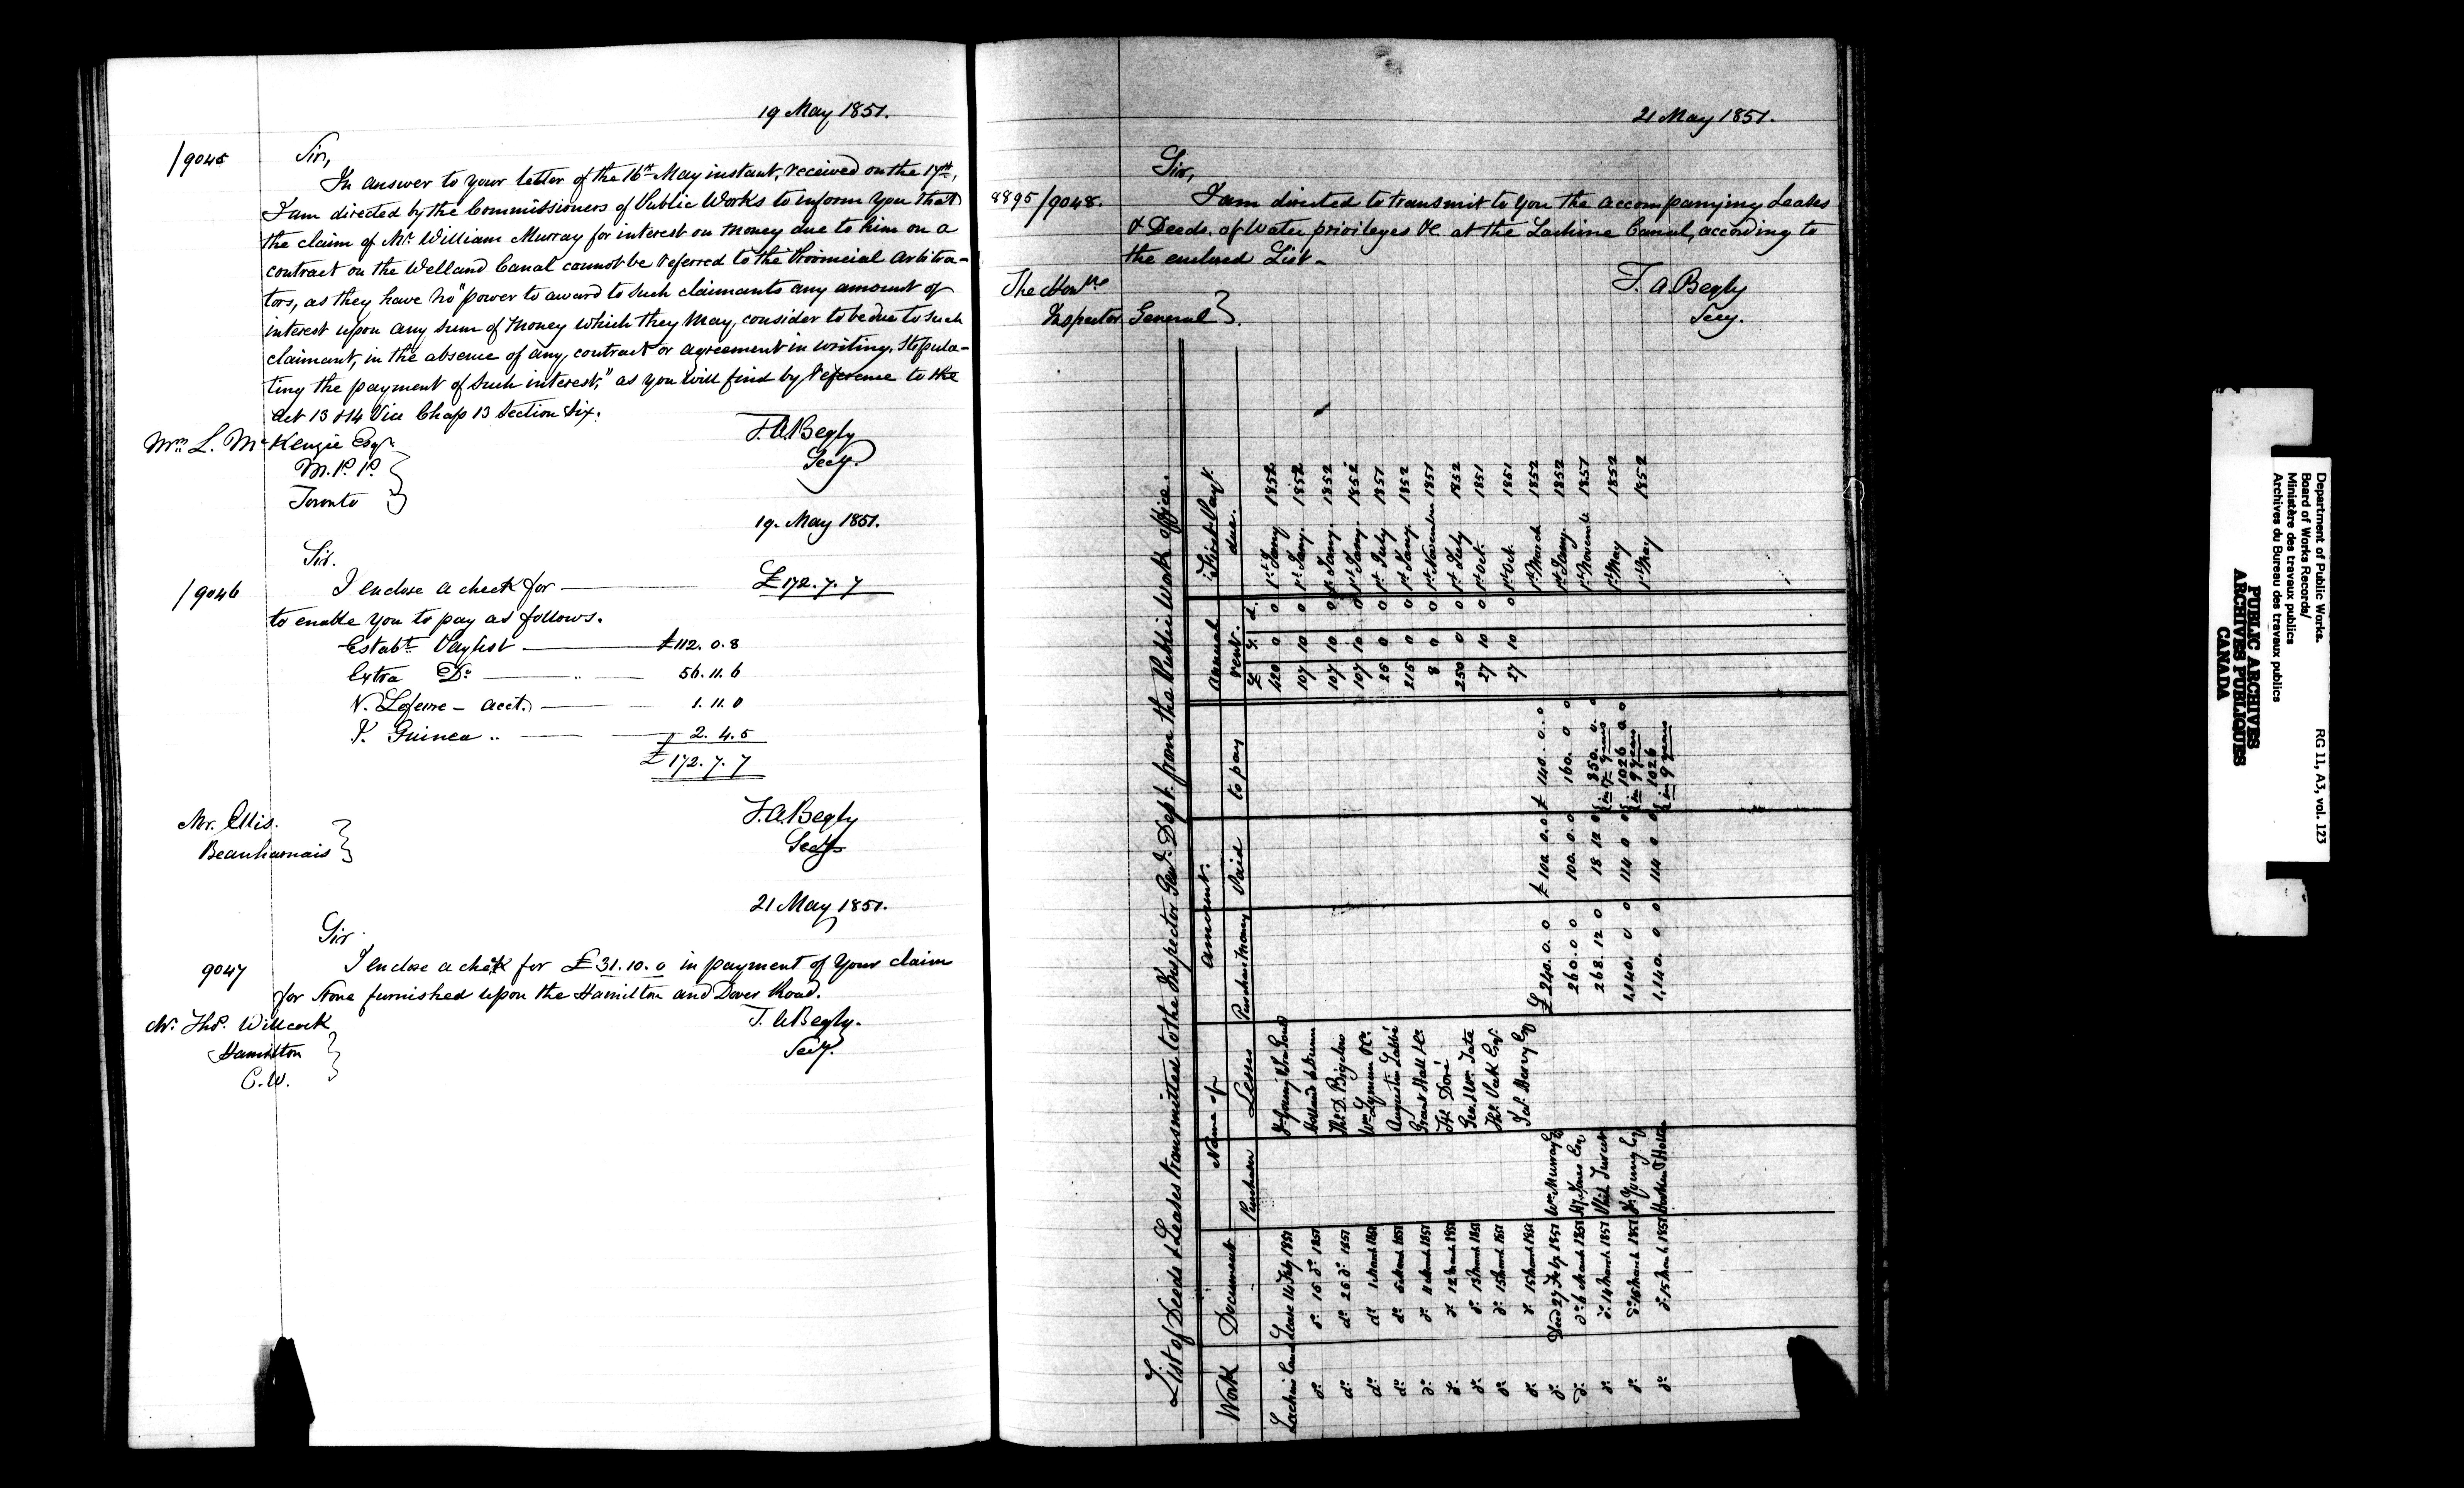 19 May 1851.
/9045
Sir,
In answer to your letter of the 16th May instant, received on the 17th,
I am directed by the Commissioners of Public Works to inform you that
the claim of Mr. William Murray for interest on money due to him on a
contract on the Welland Canal cannot be referred to the Provincial Arbitra-
tors, as they have no "power to award to such claimants any amount of
interest upon any sum of money which they may, consider to be due to such
claimant, in the absence of any, contract or agreement in writing, stipula-
ting the payment of such interest," as you will find by reference to the
Act 13 & 14 Vic Chap 13 Section Six.
Wm. L. McKenzie Esqr.
M.P.P.
Toronto
T.A. Begly
Secy.
19. May 1851.
Sir.
/9046
I enclose a check for £172.7.7
to enable you to pay as follows.
Establt. Paylist £112.0.8
Extra Do. 56.11.6
1.11.0
2.4.5
£172.7.7
Mr. Ellis.
Beauharnais
T.A. Begly
Secy
21 May 1851.
Sir
9047
I enclose a check for £31.10.0 in payment of your claim
for stone furnished upon the Hamilton and Dover Road.
Mr. Thos. Willcock
Hamilton
C.W.
T.A. Begly.
Secy.
21 May 1851.
Sir,
8895/9048.
I am directed to transmit to you the accompanying Leases
& Deeds, of Water privileges &c. at the Lachine Canal, according to
the enclosed List.
The Honble
Inspector General
T.A. Begly
Secy.
List of Deeds & Leases transmitted to the Inspector Genl. Dept. from the Public Work office.
Work Document Name of Amount. Annual rent. First Payt. due.
Purchaser Lessee Purchase Money Paid to pay £ s. d.
Lachine Canal Lease 14 Feby 1851 J. Young 420 0 0 1st Jany 1852
do. 15 do. 1851 Holland & Dunn 107 10 0 1st Jany. 1852
do. 26 do. 1851 Thos. D. Bigelow 107 10 0 1st Jany. 1852
do. 1 March 1851 Wm. Lyman &Co. 107 10 0 1st Jany. 1852
do. 5 March 1851 Augustin Labbé 25 0 0 1st July 1851
do. 11 March 1851 Grant Hall &c. 215 0 0 1st Jany. 1852
do. 12 March 1851 Doré 8 0 0 1st November 1851
do. 13 March 1851 Geo. & Wm. Tate 250 0 0 1st July 1852
do. 15 March 1851 Thos. Peck Esqr. 27 10 0 1st Oct. 1851
do. 15 March 1851 Jas. Henry Esq 27 10 0 1st Oct. 1851
do. Deed 27 Feby. 1851 Wm. Murray Esq £240.0.0 £100 0.0 £140.0.0 1st March 1852
do. do. 6 March 1851 Jones Esq 260.0.0 100.0.0 160.0.0 1st Jany. 1852
do. do. 14 March 1851 Phil. Turcot 268.12.0 18 12 0 250.0.0 in 7 years 1st Novembr 1851
do. do. 15 March 1851 J. Young Esq 1,140.0.0 114 0 0 1026 0 0 in 9 years 1st May 1852
do. do. 15 March 1851 Holton 1,140.0.0 114 0 0 1026 in 9 years 1st May 1852
Department of Public Works.
Board of Works Records/
Ministère des travaux publics
Archives du Bureau des travaux publics
RG 11, A3, vol. 123
PUBLIC ARCHIVES
ARCHIVES PUBLIQUES
CANADA